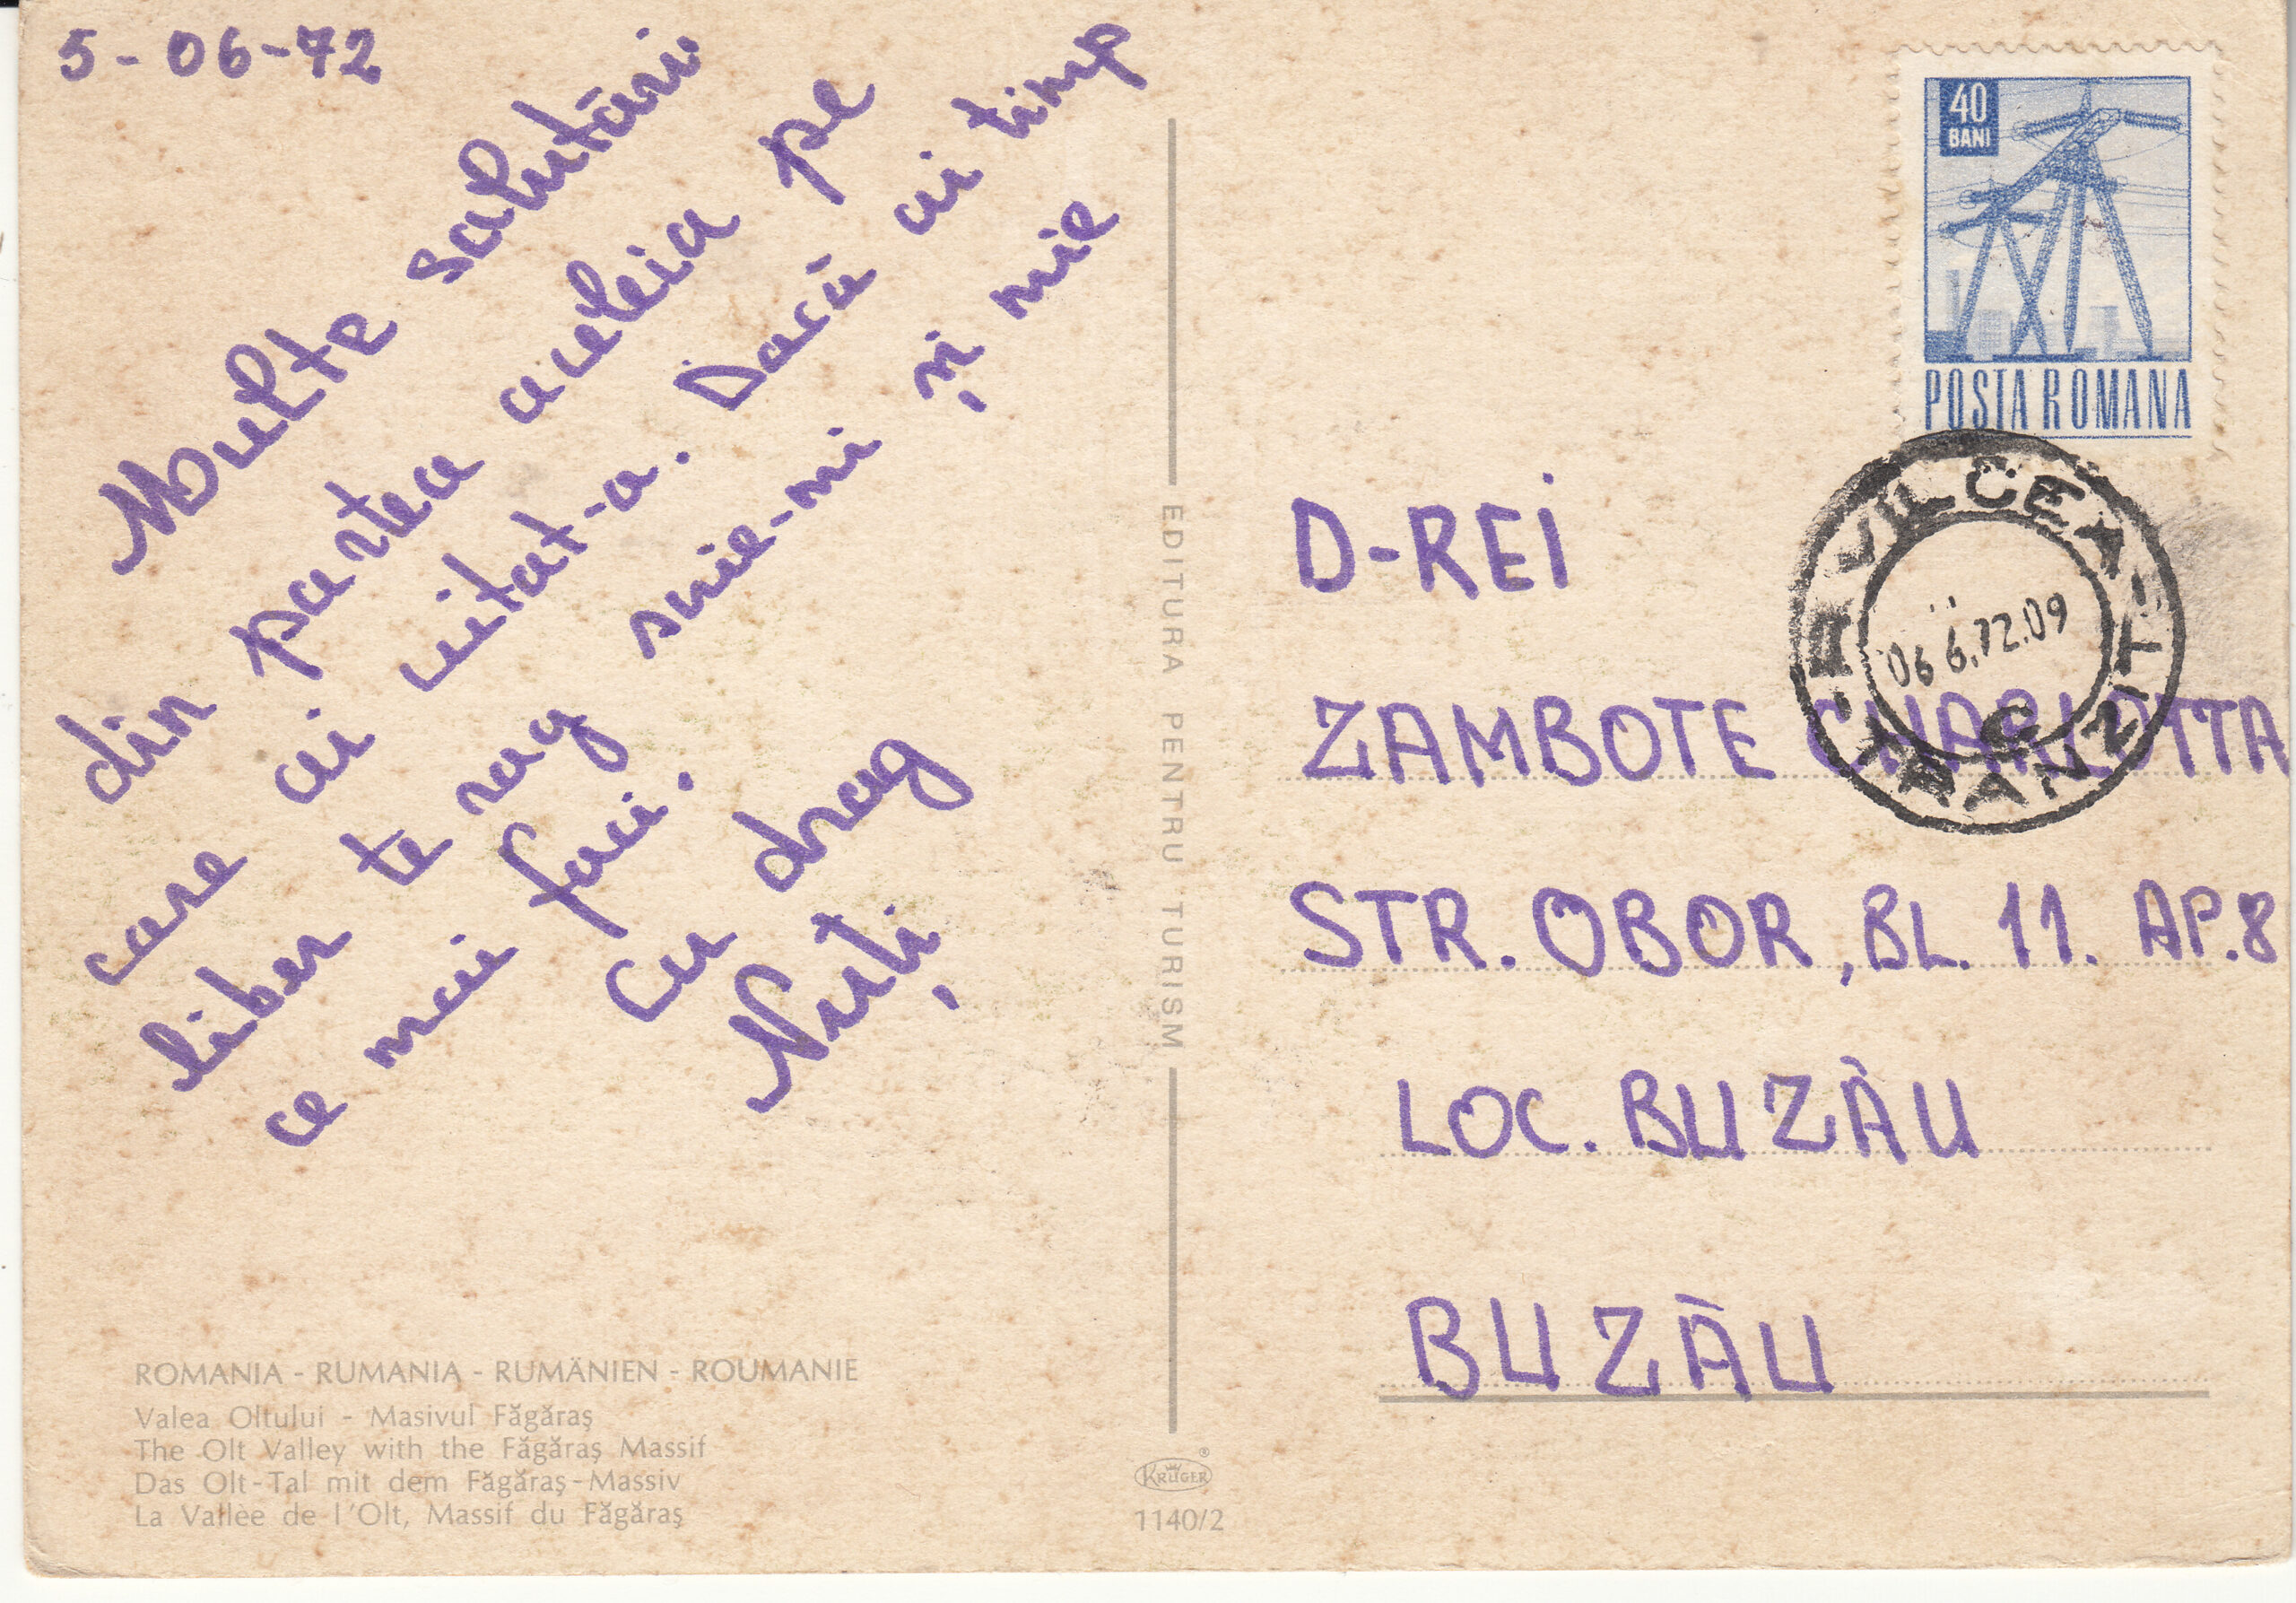 5-06-72
Multe salutări
din partea aceleia pe
care ai uitat-o. Dacă ai timp
liber te rog scrie-mi și mie
ce mai faci.
Cu drag
Nuți
EDITURA PENTRU TURISM
40
BANI
POSTA ROMANA
RM VILCEA
06 6.72.09
C
TRANZIT
D-REI
ZAMBOTE CHARLOTTA
STR. OBOR, BL. 11. AP.8
LOC. BUZĂU
BUZĂU
ROMANIA - RUMANIA - RUMÄNIEN - ROUMANIE
Valea Oltului - Masivul Făgăraş
The Olt Valley with the Făgăraş Massif
Das Olt-Tal mit dem Făgăraş-Massiv
La Vallèe de l'Olt, Massif du Făgăraş
KRÜGER ®
1140/2